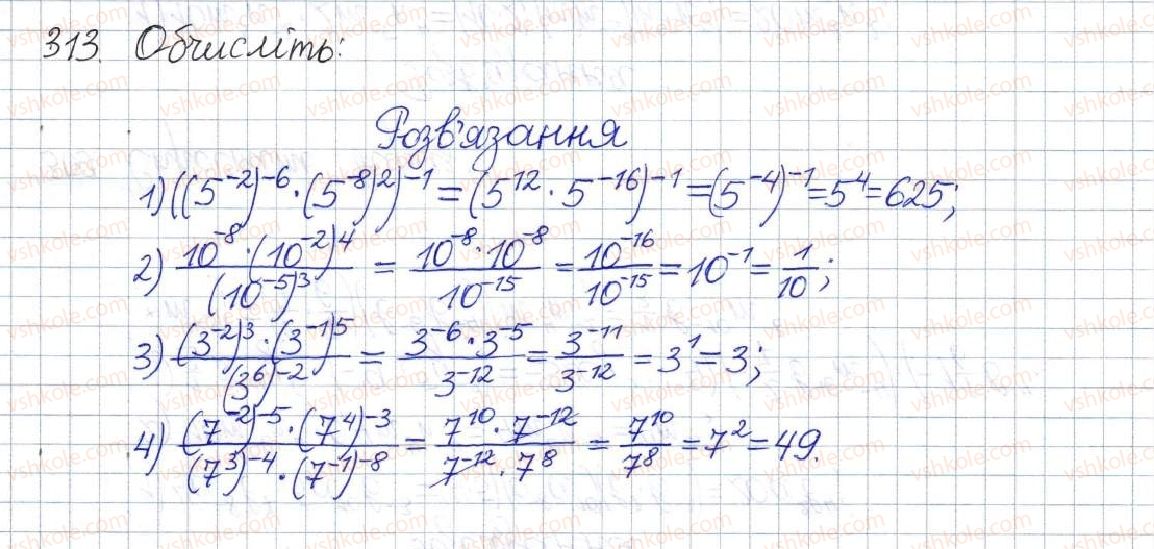 313. Обчисліть:
Розв'язання
1) ((5⁻²)⁻⁶ · (5⁻⁸)²)⁻¹ = (5¹² · 5⁻¹⁶)⁻¹ = (5⁻⁴)⁻¹ = 5⁴ = 625;
2) (10⁻⁸ · (10⁻²)⁴) / (10⁻⁵)³ = (10⁻⁸ · 10⁻⁸) / 10⁻¹⁵ = 10⁻¹⁶ / 10⁻¹⁵ = 10⁻¹ = 1/10;
3) ((3⁻²)³ · (3⁻¹)⁵) / (3⁶)⁻² = (3⁻⁶ · 3⁻⁵) / 3⁻¹² = 3⁻¹¹ / 3⁻¹² = 3¹ = 3;
4) ((7⁻²)⁻⁵ · (7⁴)⁻³) / ((7³)⁻⁴ · (7⁻¹)⁻⁸) = (7¹⁰ · 7⁻¹²) / (7⁻¹² · 7⁸) = 7¹⁰ / 7⁸ = 7² = 49.